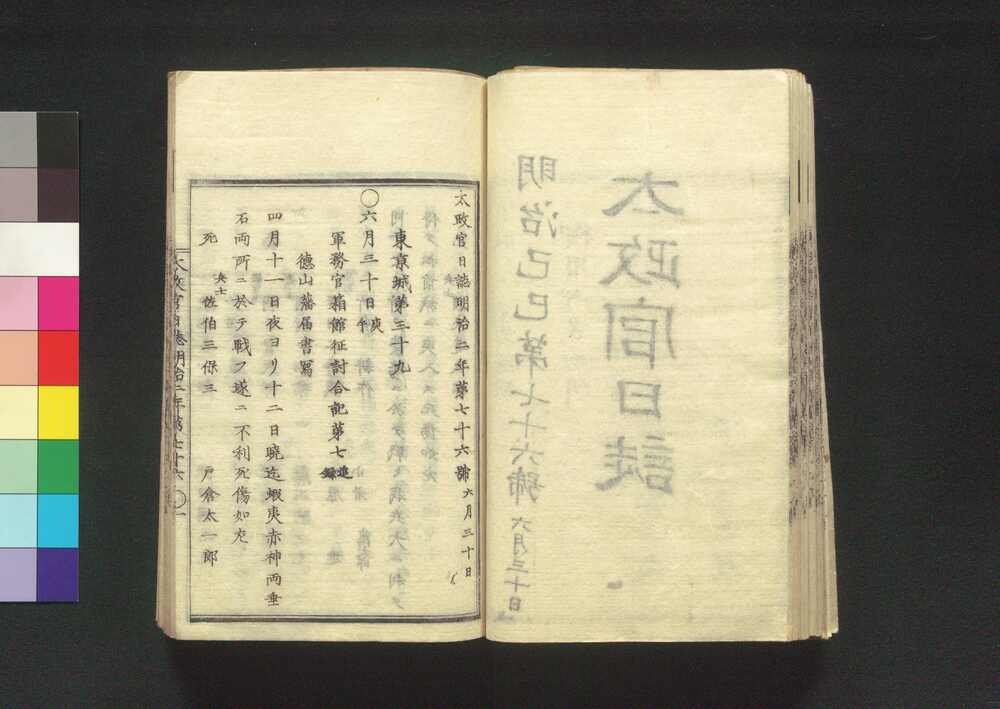 太政官日誌
明治己巳第七十六號 六月三十日
太政官日誌明治二年第七十六號 六月三十日
東京城第三十九
○六月三十日庚午
軍務官箱館征討合記第七 追録
德山藩届書寫
四月十一日夜ヨリ十二日曉迄蝦夷赤神両垂
石両所ニ於テ戰フ遂ニ不利死傷如左
死 兵士 佐伯三保三 戸倉太一郎
太政官日誌明治二年第七十六 ○一